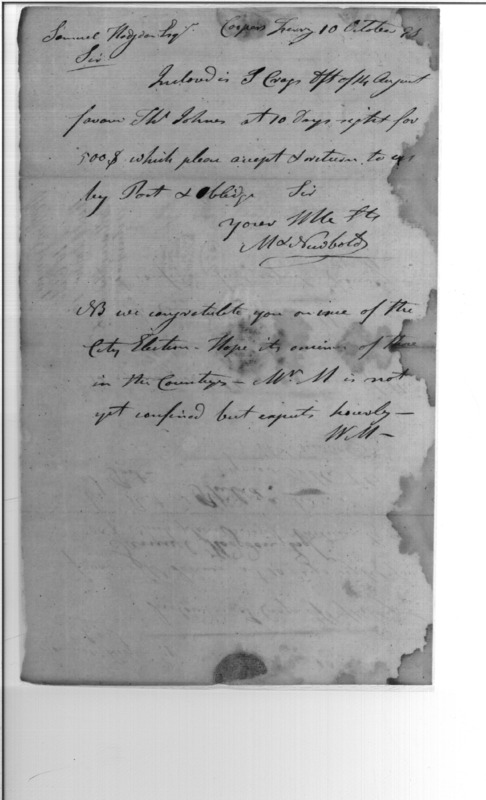 Samuel Hodgdon Esqr. Coopers Ferry 10 October 98
Sir
Inclosed is J Craigs dft of 14 August
favour Thos Johnes at 10 Days sight for
500$ which please accept & return to us
by Post & Oblidge Sir
Your Hble Sts
M & Newbold
NB we congratulate you on issue of the
City Election. Hope its ominous of those
in the Countrys — Mrs. M is not
yet confined but expects hourly —
WM —